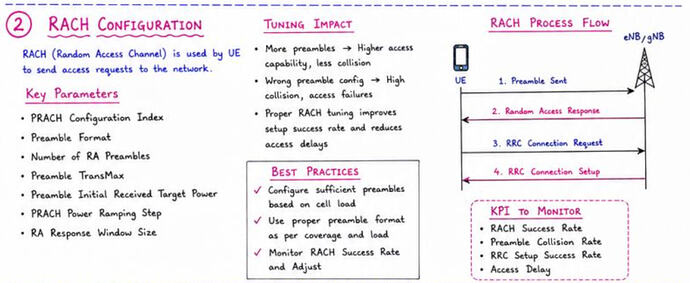 2 RACH CONFIGURATION
RACH (Random Access Channel) is used by UE
to send access requests to the network.
Key Parameters
• PRACH Configuration Index
• Preamble Format
• Number of RA Preambles
• Preamble TransMax
• Preamble Initial Received Target Power
• PRACH Power Ramping Step
• RA Response Window Size
TUNING IMPACT
• More preambles → Higher access
capability, less collision
• Wrong preamble config → High
collision, access failures
• Proper RACH tuning improves
setup success rate and reduces
access delays
BEST PRACTICES
✓ Configure sufficient preambles
based on cell load
✓ Use proper preamble format
as per coverage and load
✓ Monitor RACH Success Rate
and Adjust
RACH PROCESS FLOW
eNB/gNB
UE
1. Preamble Sent
2. Random Access Response
3. RRC Connection Request
4. RRC Connection Setup
KPI TO MONITOR
• RACH Success Rate
• Preamble Collision Rate
• RRC Setup Success Rate
• Access Delay